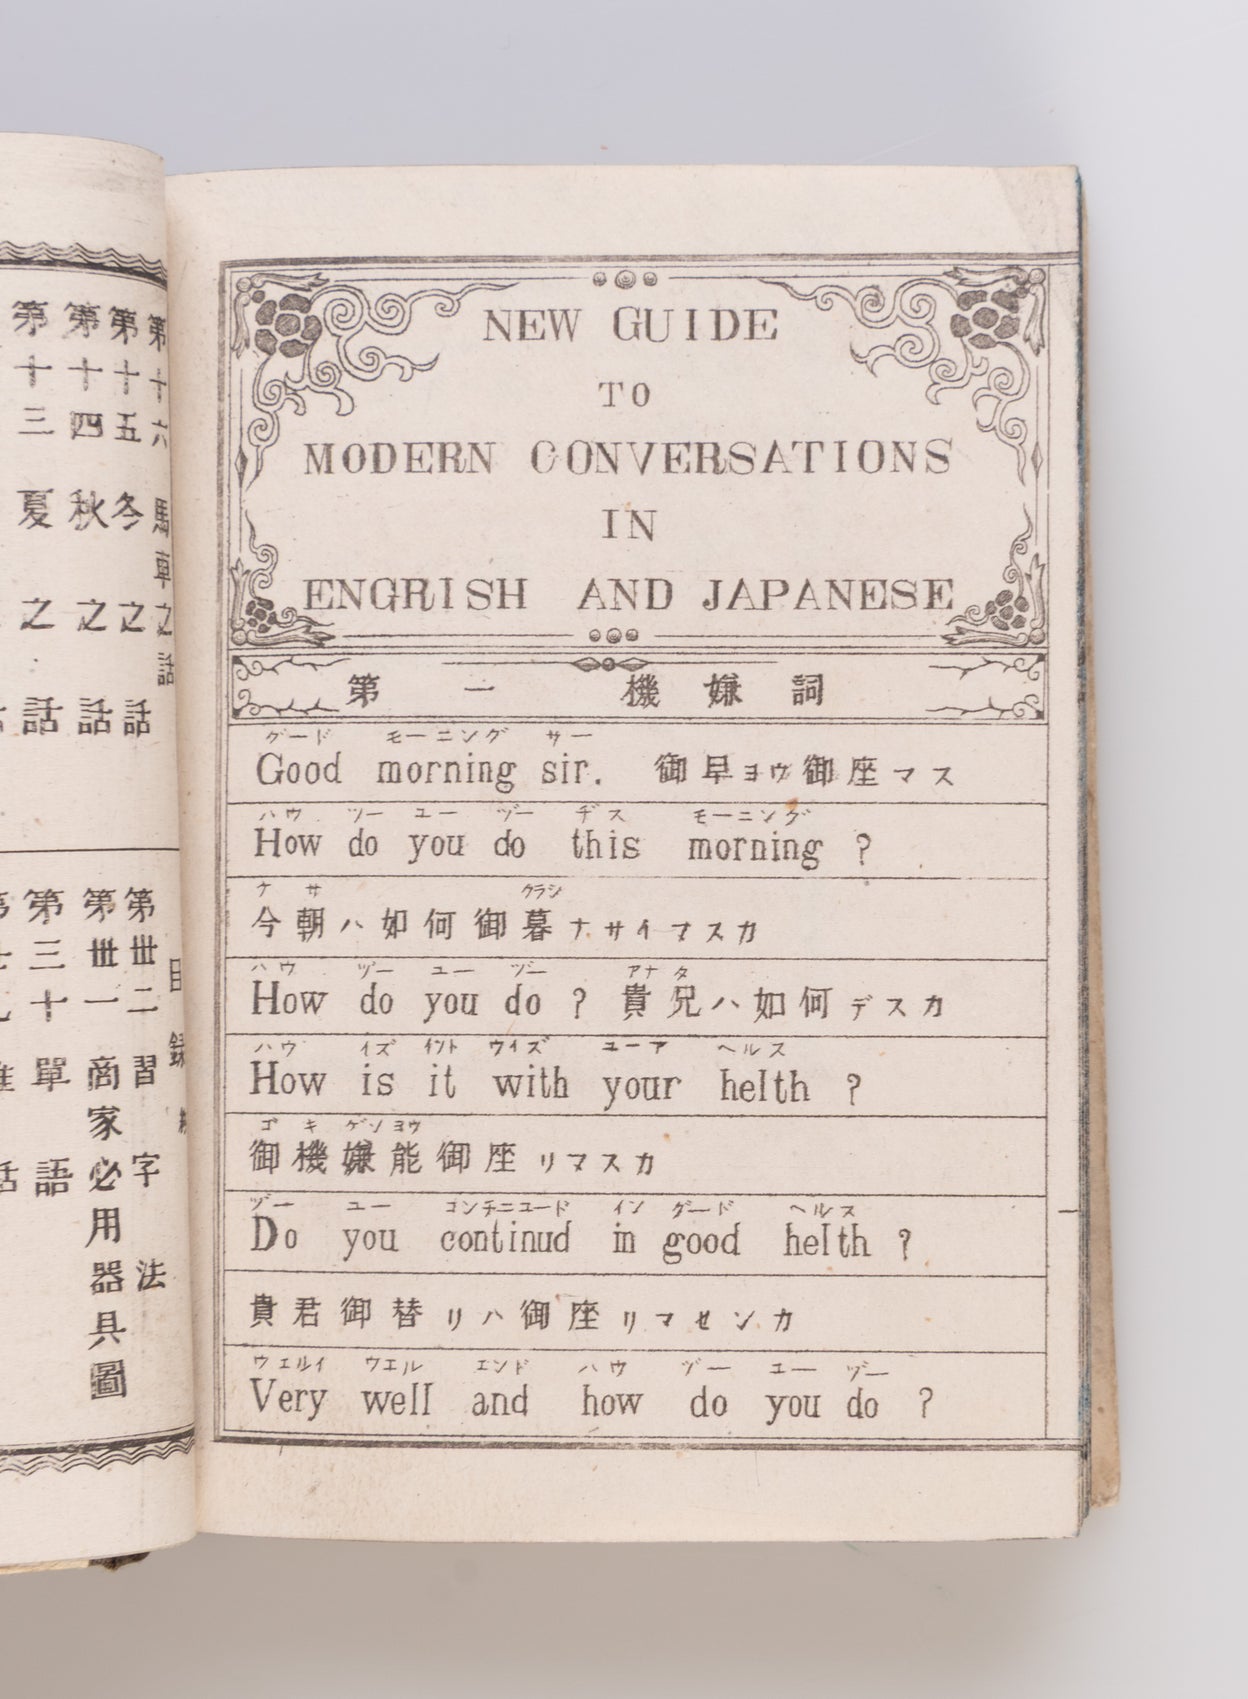 NEW GUIDE
TO
MODERN CONVERSATIONS
IN
ENGRISH AND JAPANESE
第一 機嫌詞
グード モーニング サー
Good morning sir. 御早ヨウ御座マス
ハウ ツー ユー ヅー ヂス モーニング
How do you do this morning ?
ケ サ クラシ
今朝ハ如何御暮ナサイマスカ
ハウ ヅー ユー ヅー アナタ
How do you do ? 貴兄ハ如何デスカ
ハウ イズ イント ウイズ ユーア ヘルス
How is it with your helth ?
ゴ キ ゲンヨウ
御機嫌能御座リマスカ
ヅー ユー コンチニユード イン グード ヘルス
Do you continud in good helth ?
貴君御替リハ御座リマセンカ
ウェルイ ウエル エンド ハウ ヅー ユー ヅー
Very well and how do you do ?
第十六 馬車之話
第十五 冬之話
第十四 秋之話
第十三 夏之話
目録
第卅二 習字法
第卅一 商家必用器具圖
第三十 單語